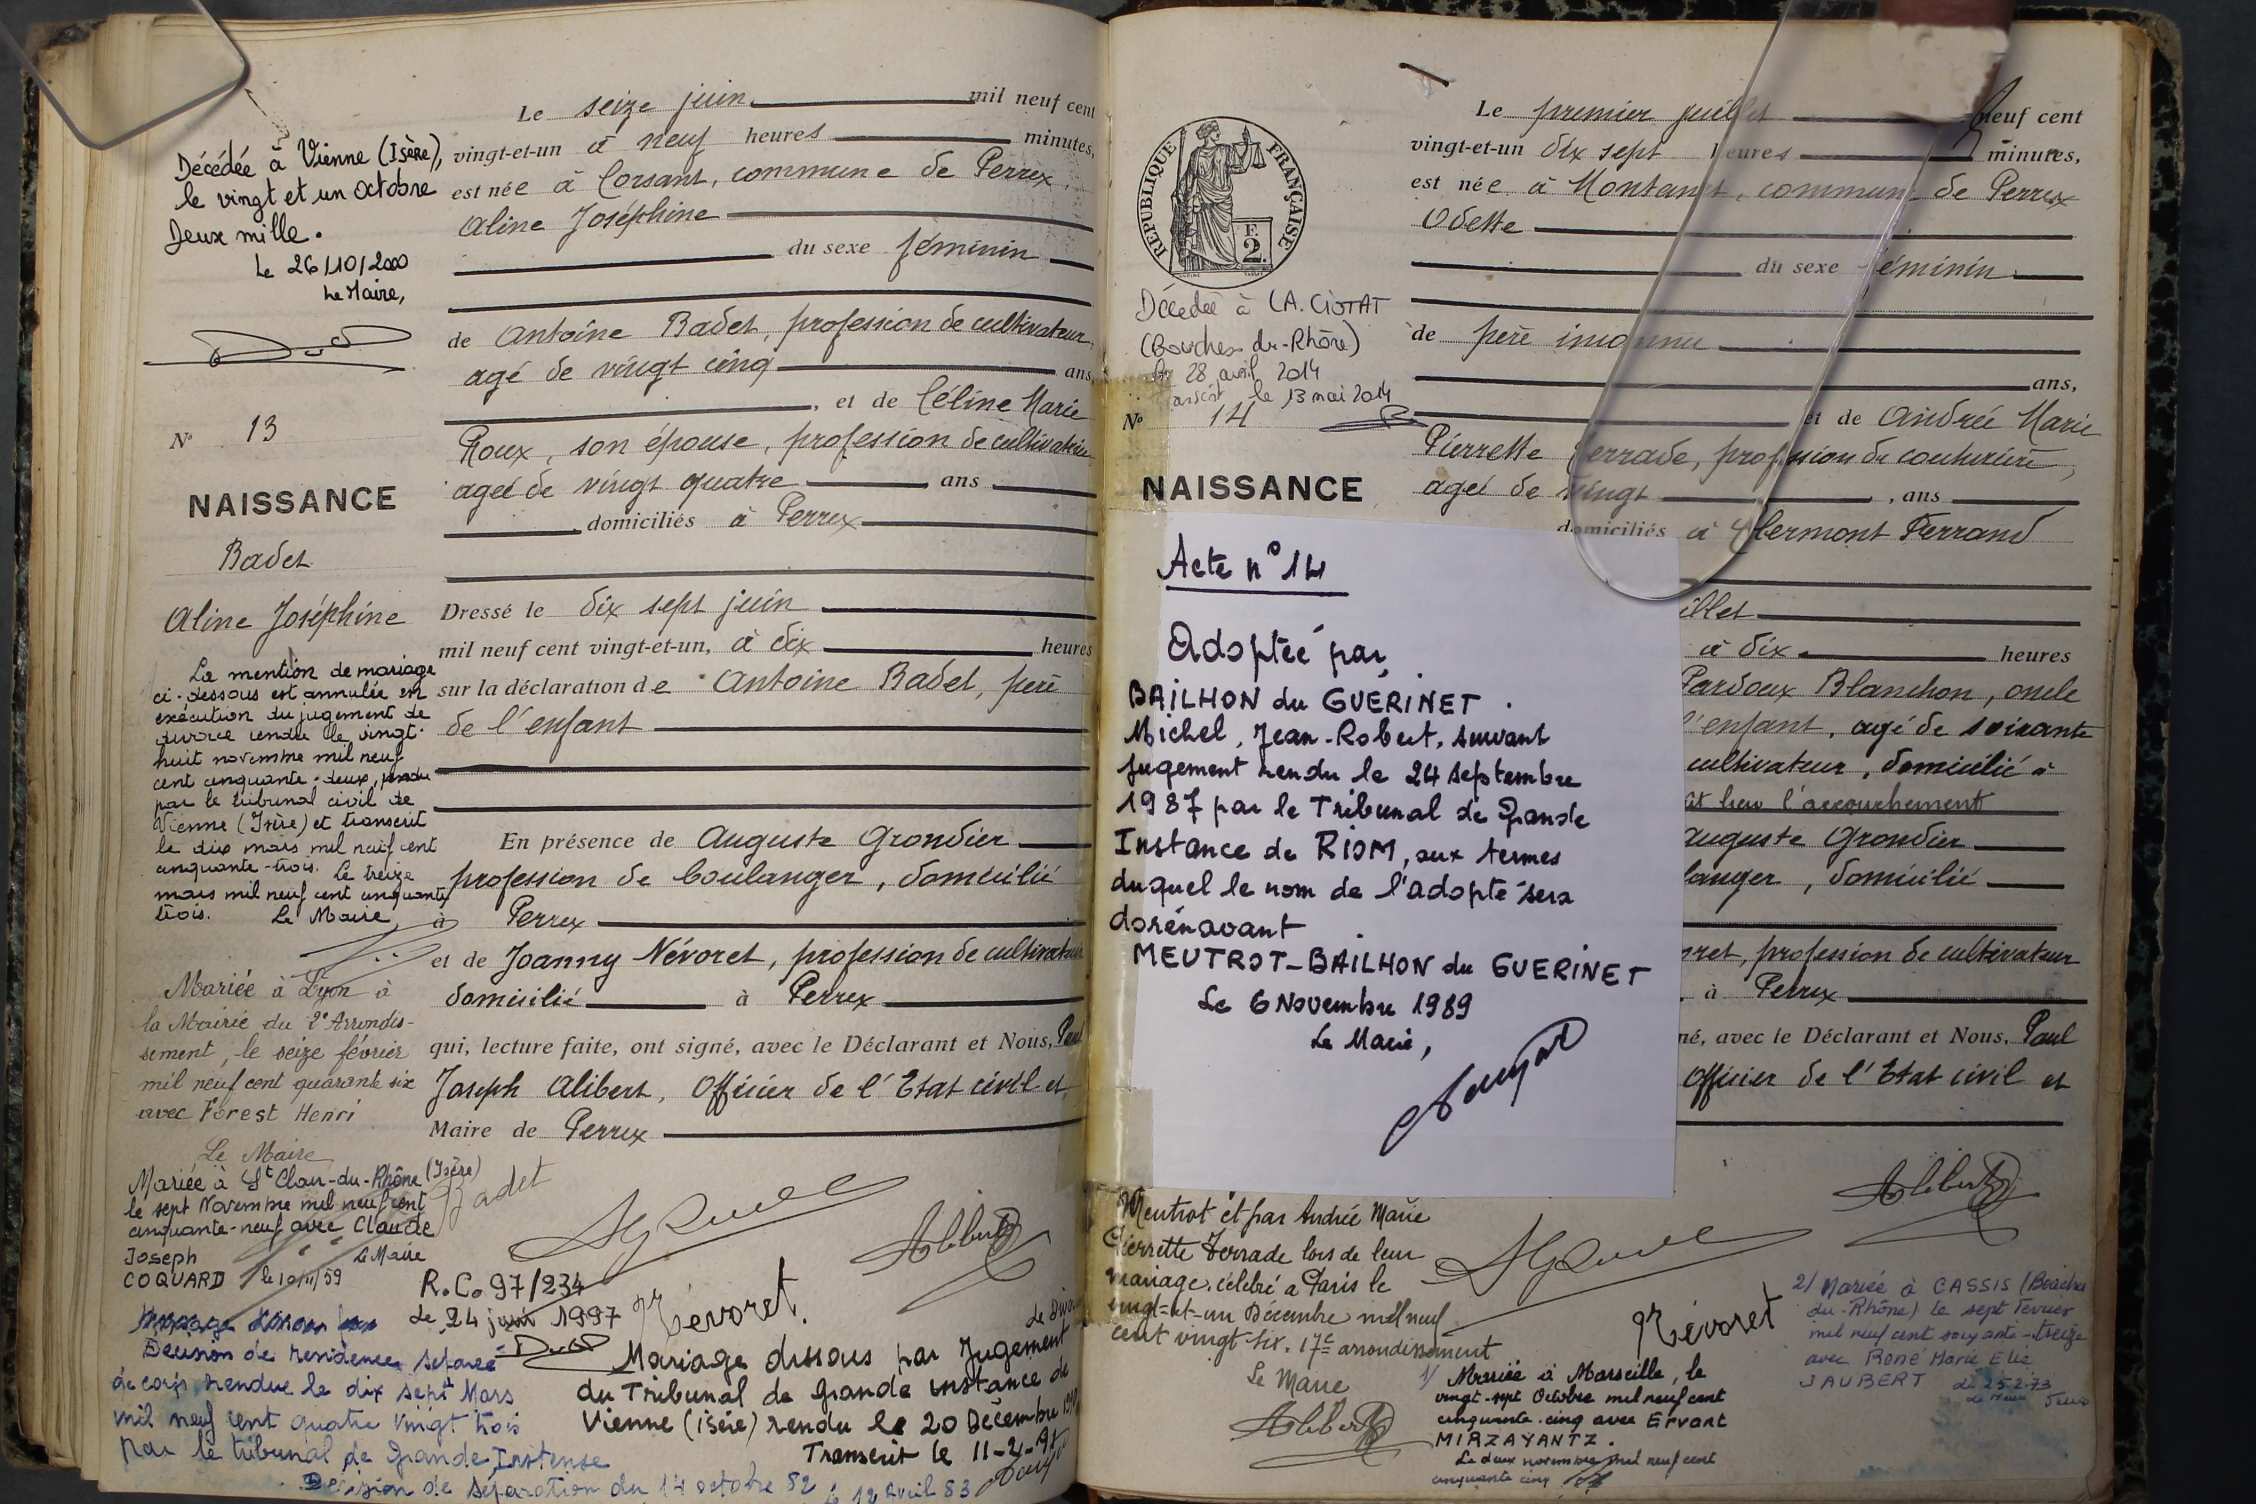 Le seize juin mil neuf cent
vingt-et-un à neuf heures minutes,
est née à Corsant, commune de Perrex,
Aline Joséphine
du sexe féminin
de Antoine Badet, profession de cultivateur,
agé de vingt cinq ans
, et de Céline Marie
Roux, son épouse, profession de cultivatrice
agée de vingt quatre ans
domiciliés à Perrex
Dressé le dix sept juin
mil neuf cent vingt-et-un, à dix heures
sur la déclaration de Antoine Badet, père
de l'enfant
En présence de Auguste Grondier
profession de boulanger, domicilié
à Perrex
et de Joanny Névoret, profession de cultivateur
domicilié à Perrex
qui, lecture faite, ont signé, avec le Déclarant et Nous, Paul
Joseph Alibert, Officier de l'Etat civil et
Maire de Perrex
Décédée à Vienne (Isère),
le vingt et un Octobre
Deux mille.
Le 26/10/2000
Le Maire,
N° 13
NAISSANCE
Badet
Aline Joséphine
La mention de mariage
ci-dessous est annulée en
exécution du jugement de
divorce rendu le vingt-
huit novembre mil neuf
cent cinquante-deux, rendu
par le tribunal civil de
Vienne (Isère) et transcrit
le dix mars mil neuf cent
cinquante-trois. Le treize
mars mil neuf cent cinquante
trois. Le Maire
Mariée à Lyon à
la Mairie du 2e Arrondis-
sement, le seize février
mil neuf cent quarante six
avec Forest Henri
Le Maire
Mariée à St Clair-du-Rhône (Isère)
le sept Novembre mil neuf cent
cinquante-neuf avec Claude
Joseph Le Maire
COQUARD le 10/11/59
Badet
Alibert
R.C. 97/234
Le 24 juin 1997
Névoret
Décision de residence séparée
de corps rendue le dix sept Mars
mil neuf cent quatre vingt trois
par le tribunal de Grande Instense
Décision de séparation du 14 octobre 82 le 12 Avril 83
Mariage dissous par Jugement
du Tribunal de Grande instance de
Vienne (isère) rendu le 20 Décembre
Transcrit le 11-2-91
RÉPUBLIQUE FRANÇAISE
E
2.
Décédée à LA CIOTAT
(Bouches du-Rhône)
le 28 avril 2014
le 13 mai 2014
N° 14
NAISSANCE
Le premier juillet neuf cent
vingt-et-un dix sept heures minutes,
est née à Montanet, commune de Perrex
Odette
du sexe féminin
de père inconnu
ans,
et de Andrée Marie
Pierrette Terrade, profession de couturière,
agée de vingt , ans
domiciliés à Clermont Ferrand
illet
à dix heures
Pardoux Blanchon, oncle
l'enfant, agé de soixante
cultivateur, domicilié à
eu lieu l'accouchement
Auguste Grondier
langer, domicilié
oret, profession de cultivateur
à Perrex
né, avec le Déclarant et Nous, Paul
Officier de l'Etat civil et
Acte n° 14
Adoptée par
BAILHON du GUERINET
Michel, Jean-Robert, suivant
jugement rendu le 24 Septembre
1987 par le Tribunal de Grande
Instance de RIOM, aux termes
duquel le nom de l'adopté sera
dorénavant
MEUTROT-BAILHON du GUERINET
Le 6 Novembre 1989
Le Maire,
Meutrot et par Andrée Marie
Pierrette Terrade lors de leur
mariage, célébré à Paris le
vingt-et-un Décembre mil neuf
cent vingt-six, 17e arrondissement
Le Maire
Alibert
Alibert
Névoret
1/ Mariée à Marseille, le
vingt-sept Octobre mil neuf cent
cinquante-cinq avec Ervant
MIRZAYANTZ.
Le deux novembre mil neuf cent
cinquante cinq
2/ Mariée à CASSIS (Bouches
du-Rhône) le sept Février
mil neuf cent soixante-treize
avec René Marie Elie
JAUBERT